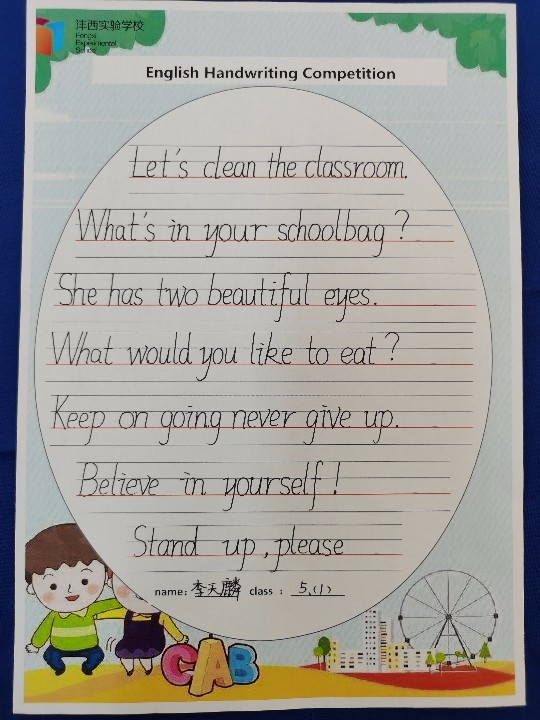 沣西实验学校
Fengxi
Experimental
School
English Handwriting Competition
Let's clean the classroom.
What's in your schoolbag?
She has two beautiful eyes.
What would you like to eat?
Keep on going never give up.
Believe in yourself!
Stand up, please
name: 李天麟 class: 5.(1)
CAB